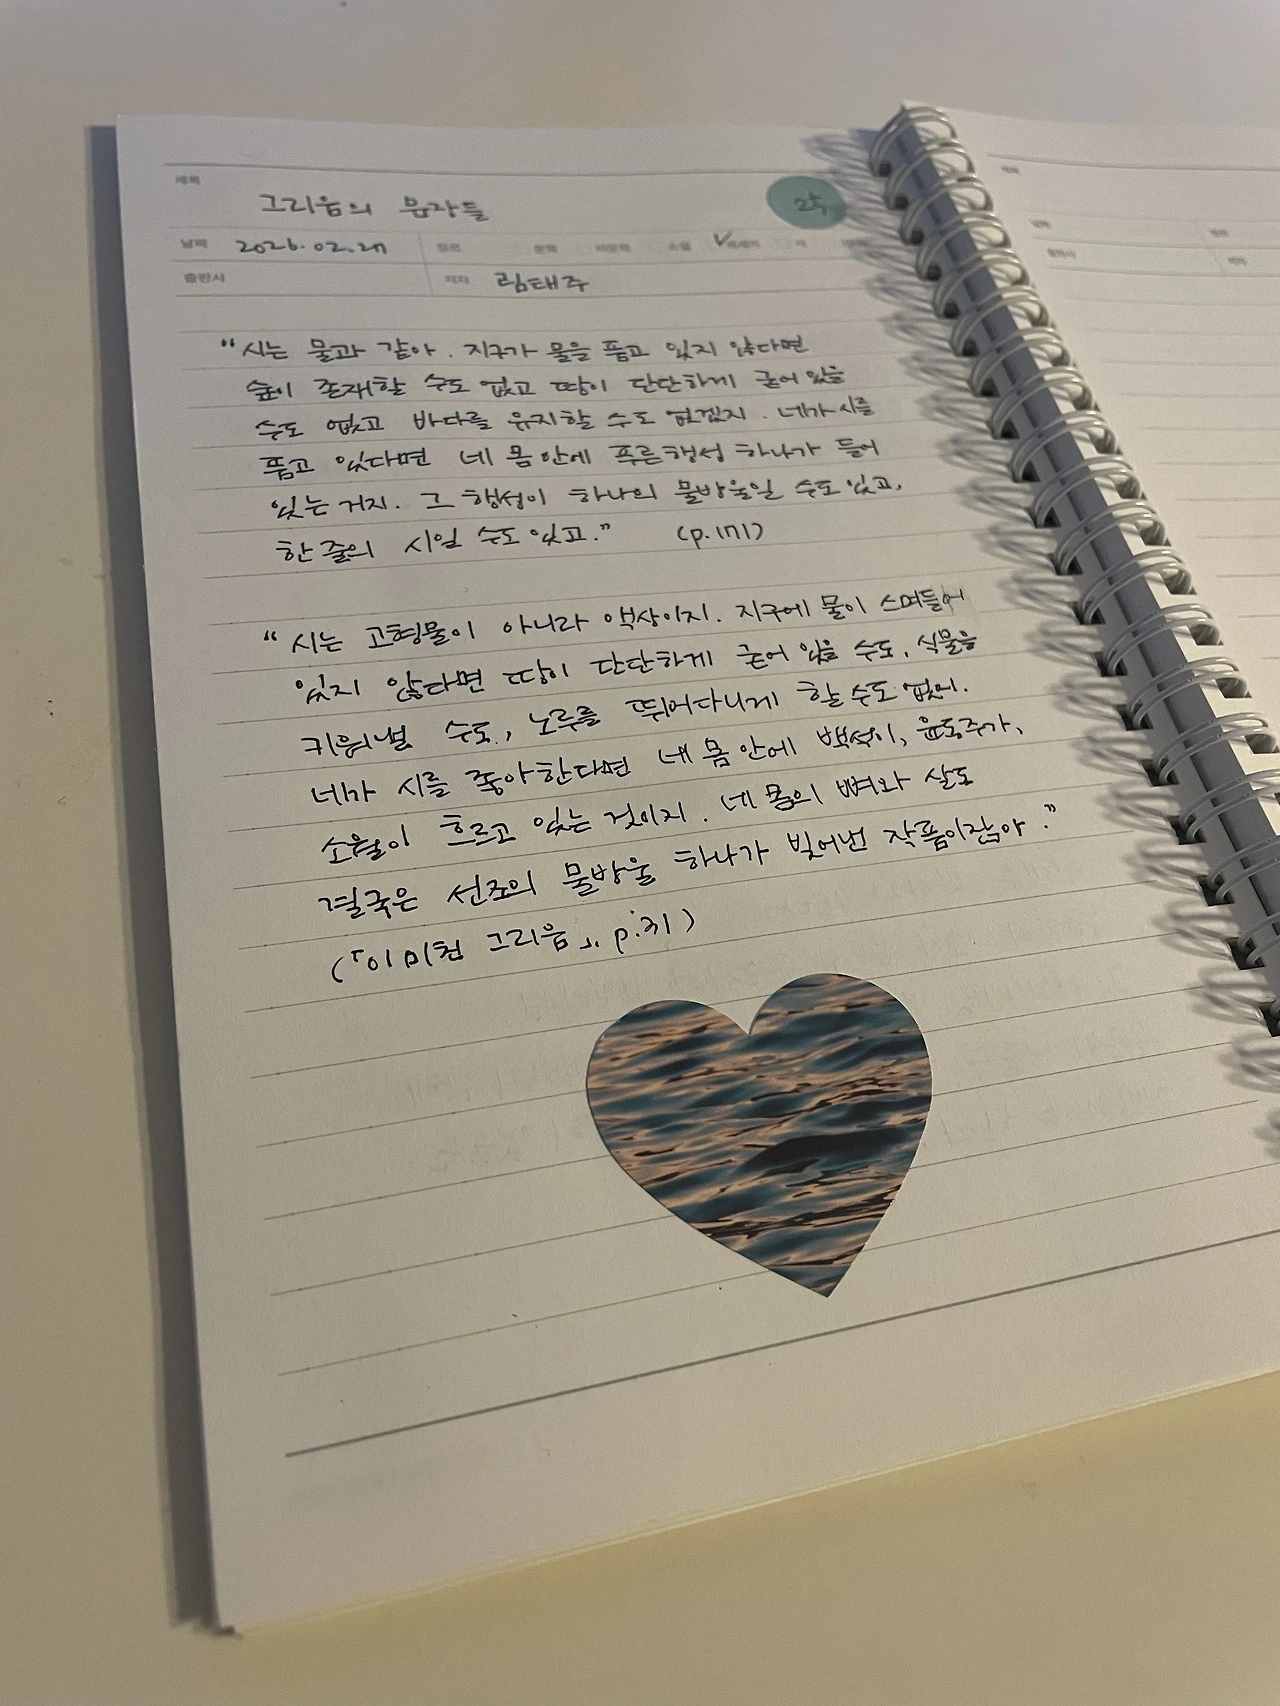 제목
그리움의 문장들
25
날짜 2026.02.27 장르 문학 비문학 소설 ✓에세이 시
출판사 저자 림태주
“시는 물과 같아. 지구가 물을 품고 있지 않다면
숲이 존재할 수도 없고 땅이 단단하게 굳어 있을
수도 없고 바다를 유지할 수도 없겠지. 네가 시를
품고 있다면 네 몸 안에 푸른 행성 하나가 들어
있는 거지. 그 행성이 하나의 물방울일 수도 있고,
한 줄의 시일 수도 있고.” (p.171)
“시는 고형물이 아니라 액상이지. 지구에 물이 스며들어
있지 않다면 땅이 단단하게 굳어 있을 수도, 식물을
키워낼 수도, 노루를 뛰어다니게 할 수도 없어.
네가 시를 좋아한다면 네 몸 안에 백석이, 윤동주가,
소월이 흐르고 있는 것이지. 네 몸의 뼈와 살도
결국은 선조의 물방울 하나가 빚어낸 작품이잖아.”
(『이 미친 그리움』, p.31)
제목
날짜 장르
출판사 저자